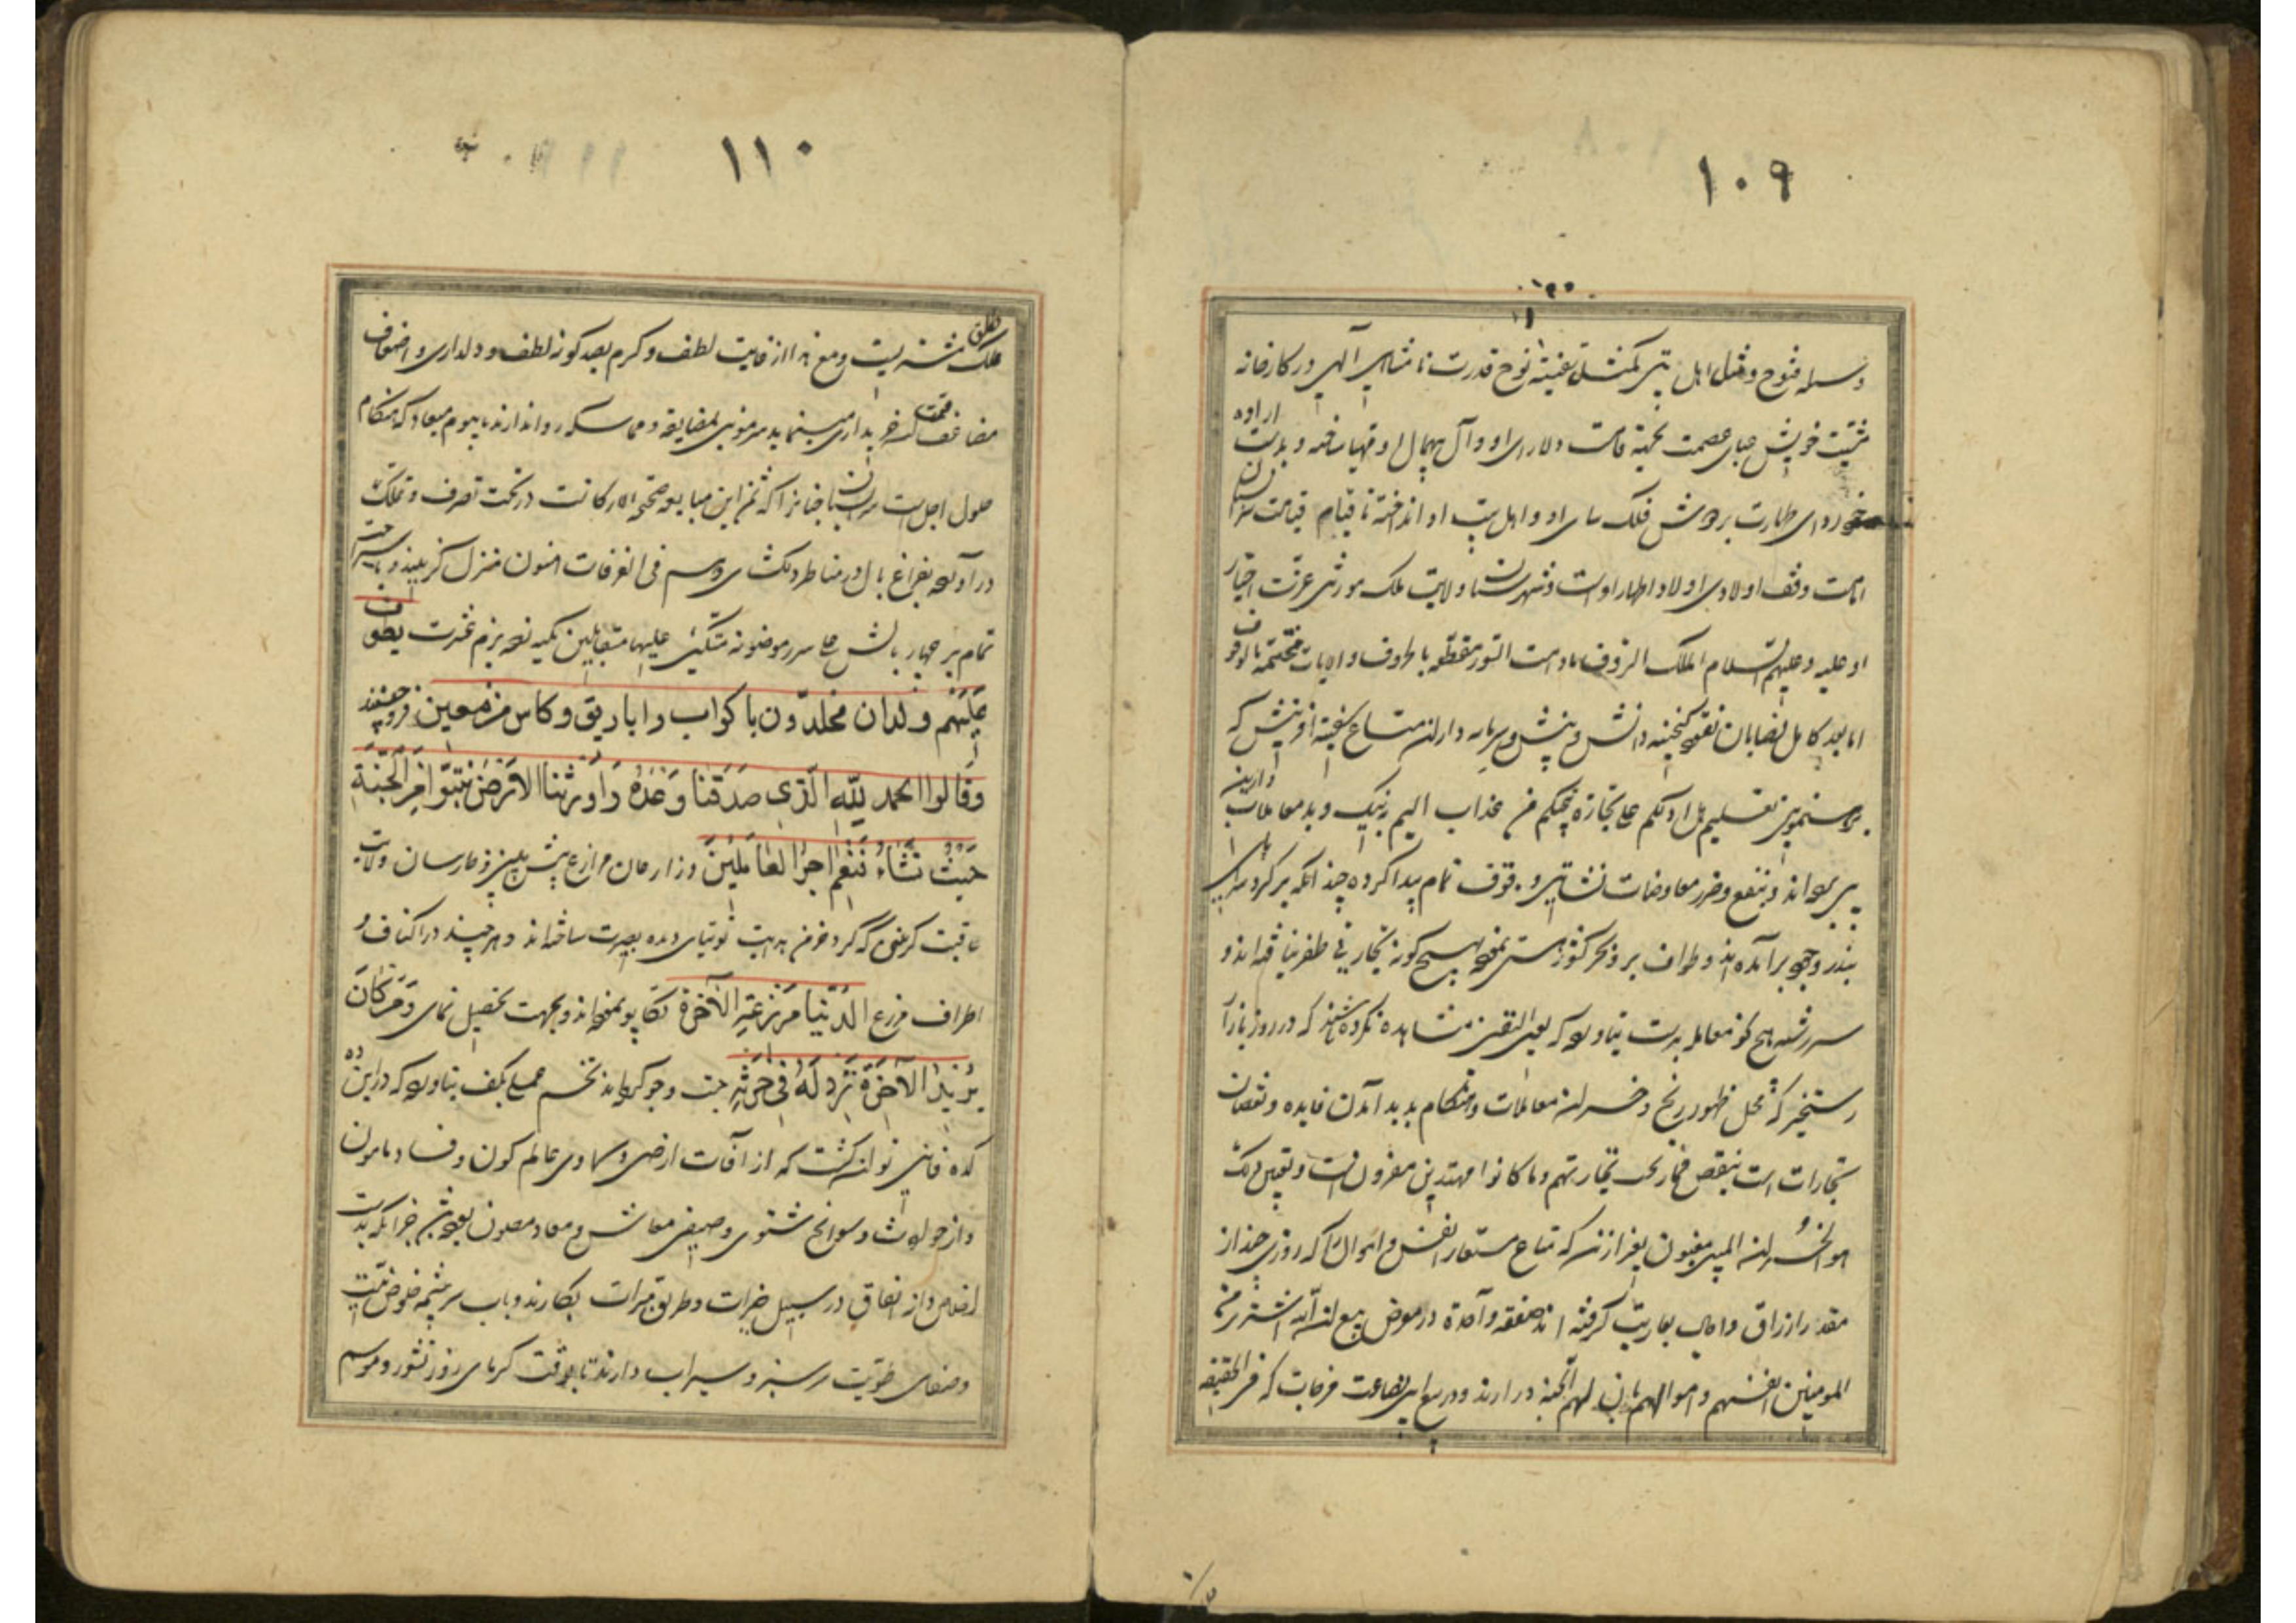 ۱۰۹
وسراسر فتوح و مثل اهل بیتی کمثل سفینة نوح قدرت نامتناهی الهی در کارخانه
مشیت خویش عبای عصمت بجهة قامت دلارای او و آل بیهمال او مهیا ساخته و بدست اراده
خود ردای طهارت بر دوش فلک سای او و اهل بیت او انداخته تا قیام قیامت
امامت وقف اولادی اولاد اطهار اوست و شهرستان ولایت ملک موروثی عترت اخیار
او علیه و علیهم السلام الملک الرؤف مادامت السور مقطعه بالحروف والایات مختتمة بالوقوف
اما بعد کامل نصابان نقود گنجینه دانش و بینش و سرمایه داران متاع سفینه آفرینش که
هل ادلکم علی تجارة تنجیکم من عذاب الیم بنیک و بد معاملات دارین
پی برده اند و بنفع و ضرر معاوضات نشاتین وقوف تمام پیدا کرده چندانکه بر گرد
بندر وجود برآمده اند و طواف بر و بحر کشور هستی نموده بهیچ گونه تجارتی ظفر نیافته اند و
سررشته هیچ گونه معامله بدست نیاورده که بعین الیقین مشاهده نکرده باشند که در روز بازار
رستخیز که محل ظهور ربح و خسران معاملات و هنگام پدید آمدن فایده و نقصان
تجارات است بنقص فما ربحت تجارتهم وما کانوا مهتدین مقرون است و بعین ذلک
هو الخسران المبین مغبون بغیر ازین که متاع مستعار انفس و اموال را که روزی چند از
مقدر ارزاق و اجال بعاریت گرفته اند صفقة واحدة در معرض بیع ان الله اشتری من
المومنین انفسهم و اموالهم بان لهم الجنة درارند و در بیع این بضاعت مزجات که فی الحقیقه
۱۱۰
ملک مشتریست و مع هذا از غایت لطف و کرم بصد گونه لطف و دلداری و اضعاف
مضاعف قیمت خریداری مینماید سر موئی مضایقه و مماسکه روا ندارند تا بیوم میعاد که هنگام
حلول اجل است جنانرا که ثمن این مبایعه صحیحة الارکانست در تحت تصرف و تملک
در آورده بفراغ بال در مناظر دلکشای وهم فی الغرفات امنون منزل گزینند و باستراحت
تمام بر چهار بالش علی سرر موضونة متکئین علیها متقابلین تکیه زده بزم عشرت یطوف
علیهم ولدان مخلدون باکواب واباریق وکاس من معین
وقالوا الحمد لله الذی صدقنا وعده واورثنا الارض نتبوا من الجنة
حیث نشاء فنعم اجر العاملین وزارعان مزارع پیش بینی و حارسان ولایت
عاقبت گزینی که گرد خرمن هدایت توتیای دیده بصیرت ساخته اند و هر چند در اکناف و
اطراف مزرع الدنیا مزرعة الآخرة تکاپو نموده اند و بجهت تحصیل نمای ومن کان
یرید حرث الآخرة نزد له فی حرثه جست و جو کرده اند تخم عملی بکف نیاورده که دراین
کده فانی توان کشت که از آفات ارضی و سماوی عالم کون و فساد مامون
و از حوادث و سوانح شتوی و صیفی معاش و معاد مصون بوده باشد جز آنکه بدست
اخلاص دانه انفاق در سبیل خیرات و طریق مبرات بکارند و باب سرچشمه خلوص نیت
و صفای طویت سرسبز و سیراب دارند تا بوقت گرمای روز نشور و موسم